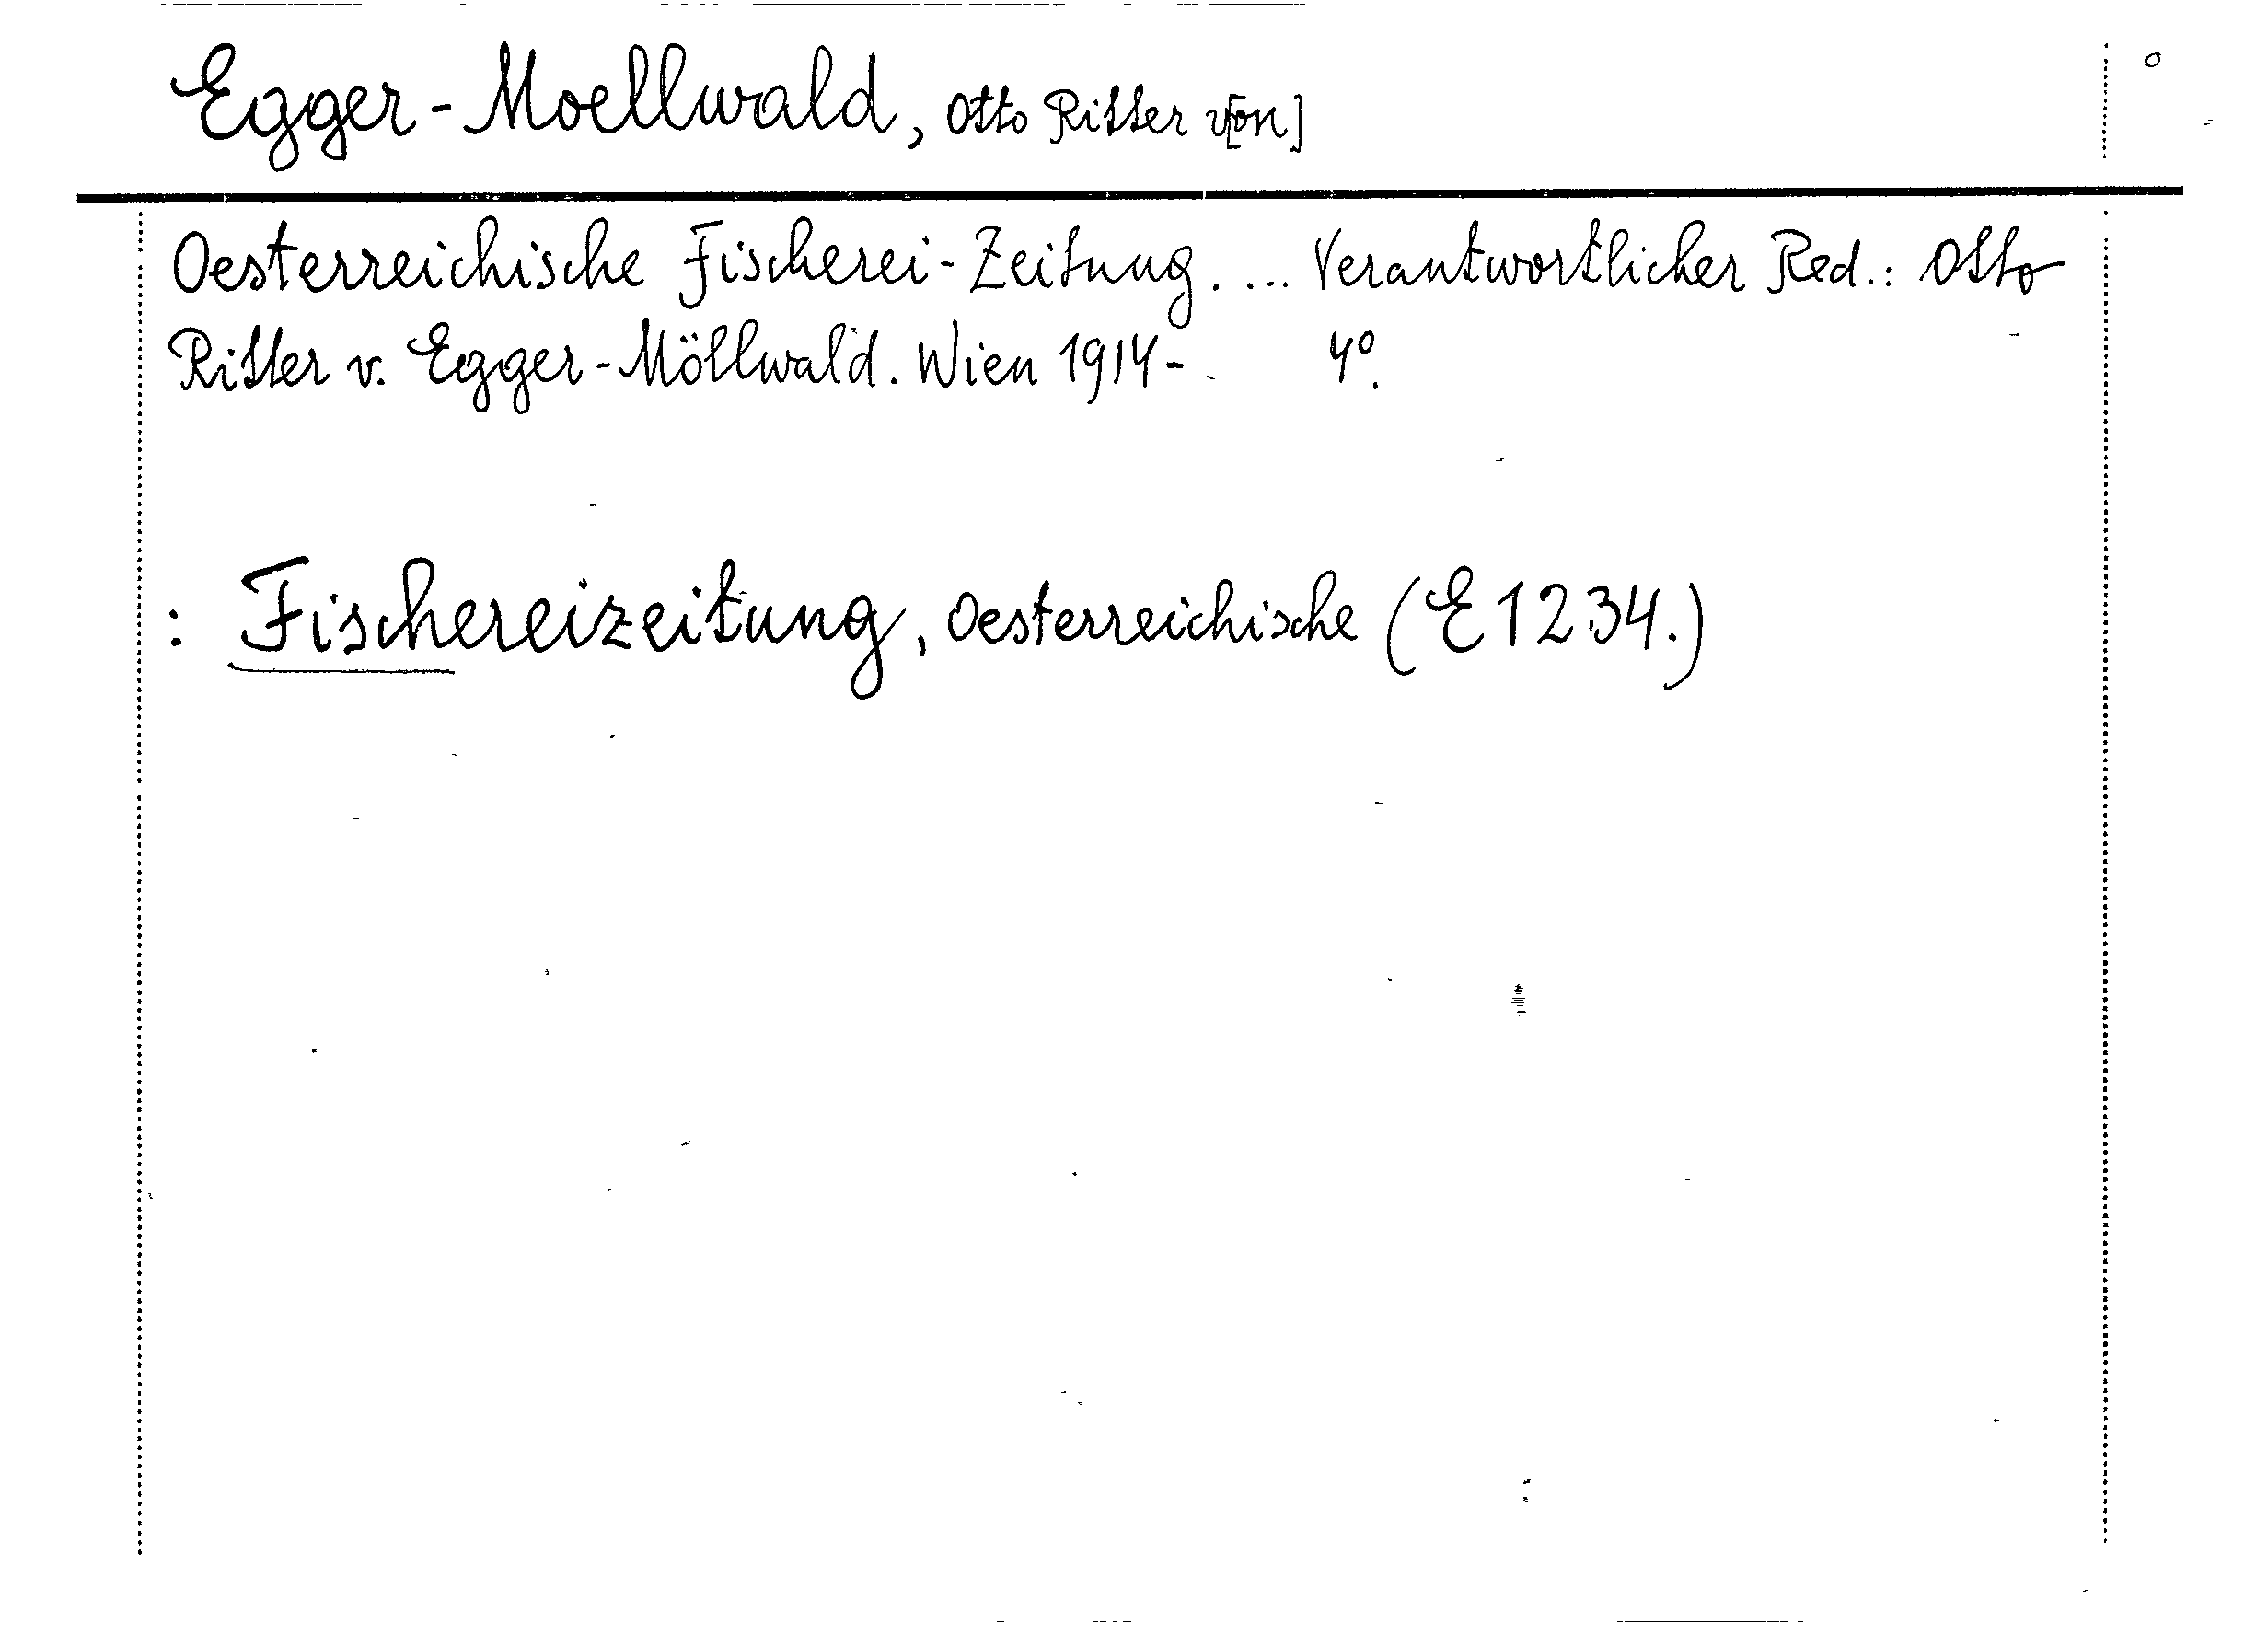 Egger-Moellwald, Otto Ritter v[on]
Oesterreichische Fischerei-Zeitung. ... Verantwortlicher Red.: Otto
Ritter v. Egger-Möllwald. Wien 1914- 4°.
: Fischereizeitung, Oesterreichische (E 1234.)